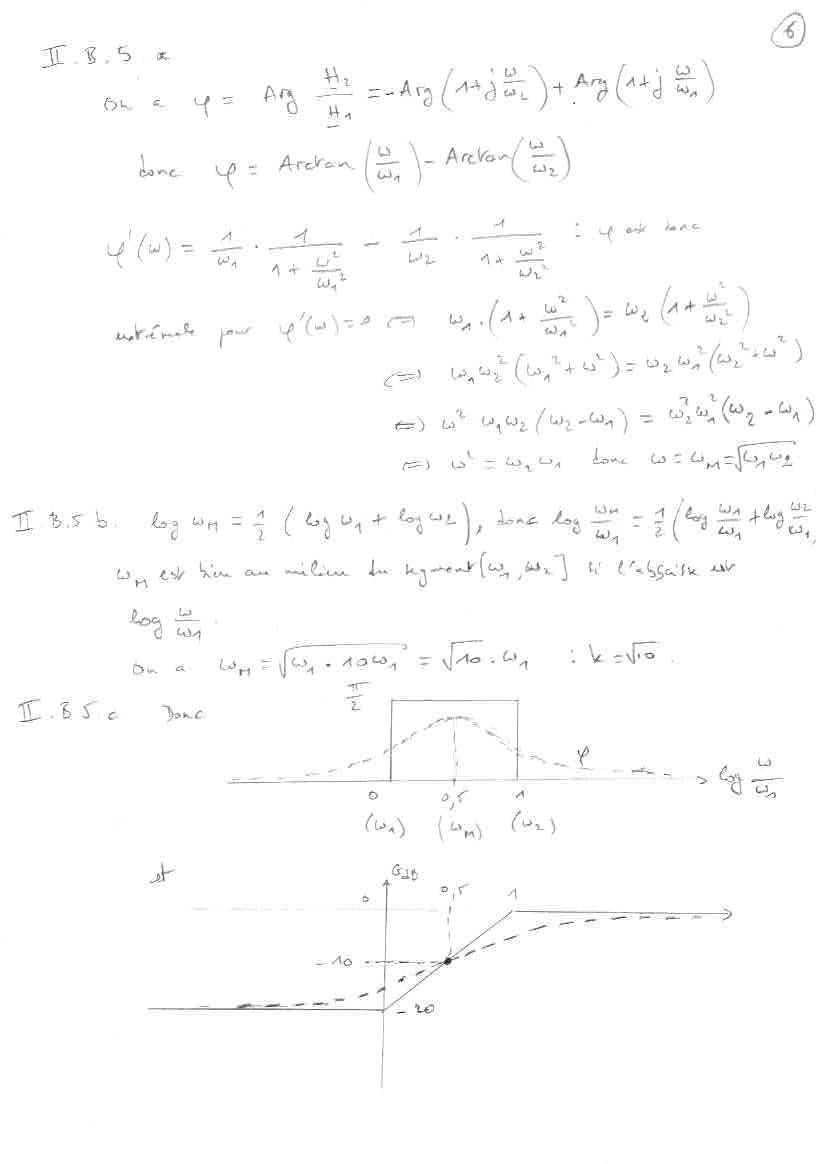 6
II.B.5 a
On a φ = Arg H₂/H₁ = -Arg(1+j ω/ω₂) + Arg(1+j ω/ω₁)
donc φ = Arctan(ω/ω₁) - Arctan(ω/ω₂)
φ'(ω) = 1/ω₁ · 1/(1+ω²/ω₁²) - 1/ω₂ · 1/(1+ω²/ω₂²) : φ est donc
extrémale pour φ'(ω)=0 ⇔ ω₁·(1+ω²/ω₁²) = ω₂(1+ω²/ω₂²)
⇔ ω₁ω₂²(ω₁²+ω²) = ω₂ω₁²(ω₂²+ω²)
⇔ ω² ω₁ω₂(ω₂-ω₁) = ω₂²ω₁²(ω₂-ω₁)
⇔ ω² = ω₂ω₁ donc ω = ω_M = √(ω₁ω₂)
II B.5 b. log ω_M = 1/2 (log ω₁ + log ω₂), donc log ω_M/ω₁ = 1/2 (log ω₁/ω₁ + log ω₂/ω₁,
ω_M est bien au milieu du segment [ω₁, ω₂] si l'abscisse est
log ω/ω₁.
On a ω_M = √(ω₁·10ω₁) = √10·ω₁ : k = √10.
II.B5 c Donc
π/2
φ
log ω/ω₁
0 0,5 1
(ω₁) (ω_M) (ω₂)
et
GdB
0 0,5 1
-10
-20